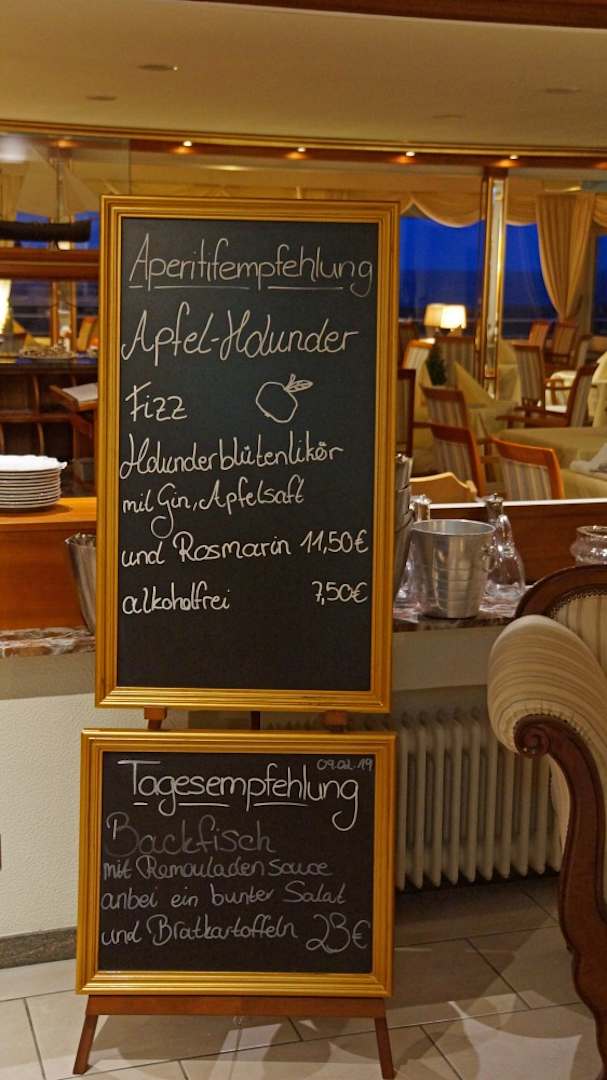 Aperitifempfehlung
Apfel-Holunder
Fizz
Holunderblütenlikör
mit Gin, Apfelsaft
und Rosmarin 11,50€
alkoholfrei 7,50€
09.02.19
Tagesempfehlung
Backfisch
mit Remouladensauce
anbei ein bunter Salat
und Bratkartoffeln 23€